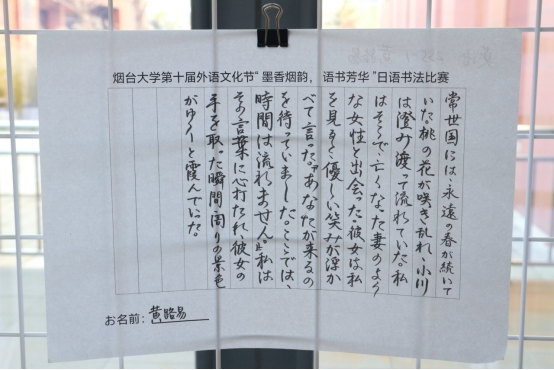 烟台大学第十届外语文化节“墨香烟韵，语书芳华”日语书法比赛
常世国には、永遠の春が続いて
いた。桃の花が咲き乱れ、小川
は澄み渡って流れていた。私
はそこで、亡くなった妻のよう
な女性と出会った。彼女は私
を見ると、優しい笑みが浮か
べて言った。「あなたが来るの
を待っていました。ここでは、
時間は流れません」と。私は
その言葉に心打たれ、彼女の
手を取った瞬間、周りの景色
がゆっくりと霞んでいった。
お名前：黄路易